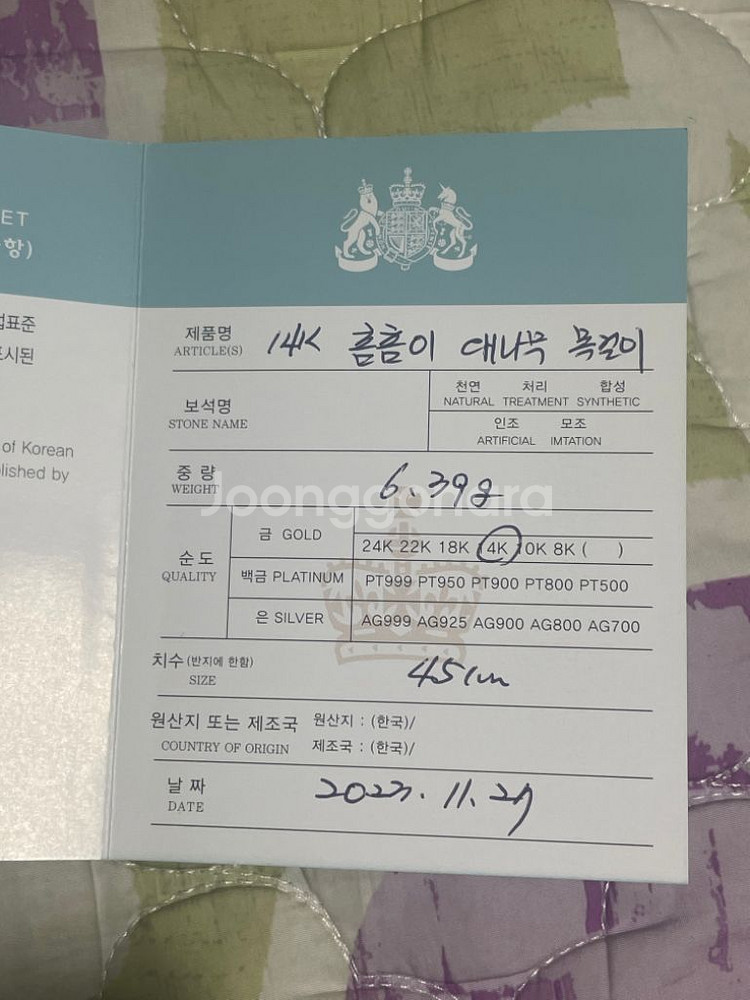 ET
항)
표준
표시된
of Korean
lished by
제품명 14K 흠흠이 대나무 목걸이
ARTICLE(S)
보석명
STONE NAME
천연 처리 합성
NATURAL TREATMENT SYNTHETIC
인조 모조
ARTIFICIAL IMTATION
중 량 6.39g
WEIGHT
순 도
QUALITY
금 GOLD
24K 22K 18K 14K 10K 8K ( )
백금 PLATINUM PT999 PT950 PT900 PT800 PT500
은 SILVER AG999 AG925 AG900 AG800 AG700
치수 (반지에 한함) 45cm
SIZE
원산지 또는 제조국 원산지 : (한국)/
COUNTRY OF ORIGIN 제조국 : (한국)/
날 짜 2023. 11. 27
DATE
Joonggonara